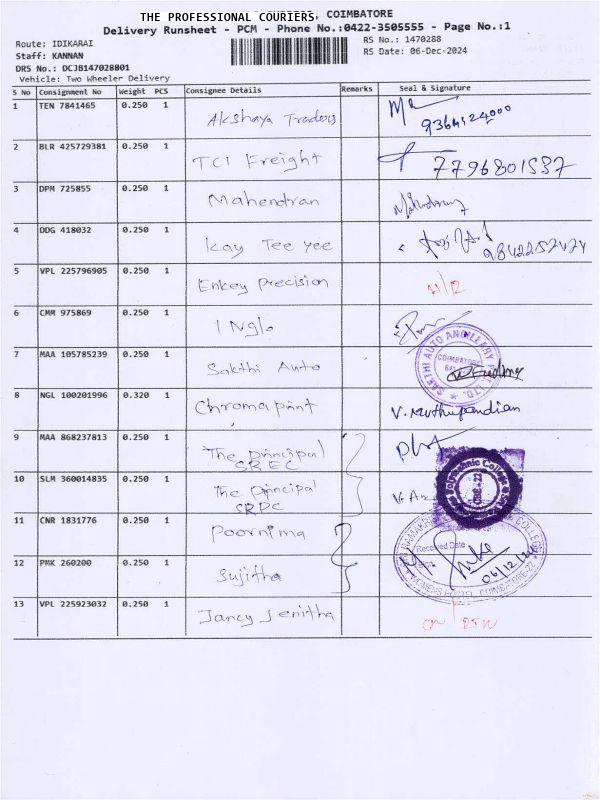 THE PROFESSIONAL COURIERS, COIMBATORE
Delivery Runsheet - PCM - Phone No.:0422-3505555 - Page No.:1
Route: IDIKARAI
RS No.: 1470288
Staff: KANNAN
RS Date: 06-Dec-2024
DRS No.: DCJB147028801
Vehicle: Two Wheeler Delivery
S No Consignment No Weight PCS Consignee Details Remarks Seal & Signature
1 TEN 7841465 0.250 1 Akshaya Traders
2 BLR 425729381 0.250 1 TCI Freight 7796801537
3 DPM 725855 0.250 1 Mahendran
4 DDG 418032 0.250 1 Kay Tee yee 9842252424
5 VPL 225796905 0.250 1 Enkey Precision
6 CMM 975869 0.250 1 INglo
7 MAA 105785239 0.250 1 Sakthi Auto
SAKTHI AUTO ANCILLARY PVT. LTD.
COIMBATORE
8 NGL 100201996 0.320 1 Chromaprint V. Muthupandian
9 MAA 868237813 0.250 1 The principal
SREC
10 SLM 360014835 0.250 1 The principal
SRPC
Polytechnic College
11 CNR 1831776 0.250 1 Poornima
Received Date
12 PMK 260200 0.250 1 Sujitha 06/12/24
HOSTEL, COIMBATORE-22
13 VPL 225923032 0.250 1 Jancy Jenitha